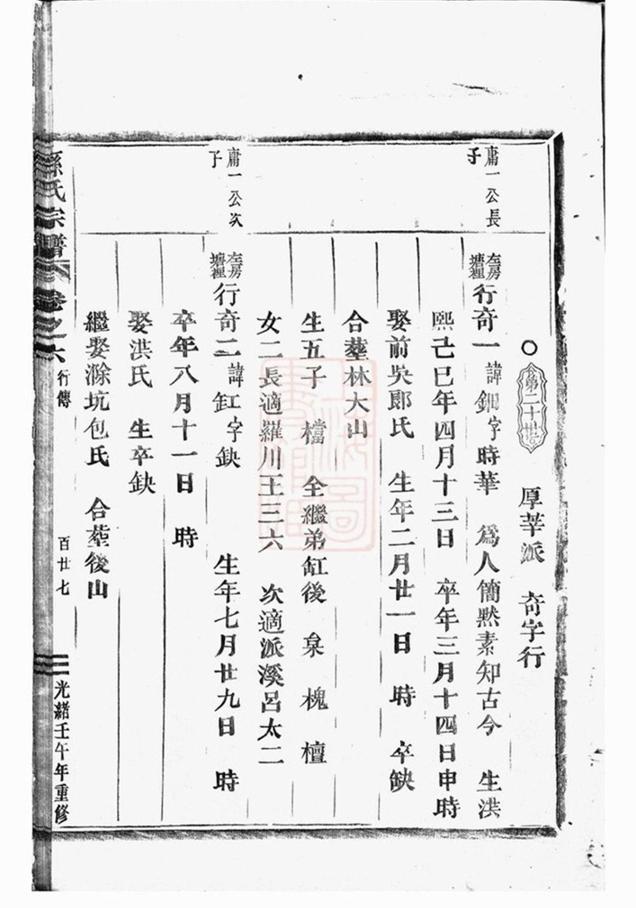 第二十世 厚莘派 奇字行
庸一公長子
在房塘裡 行奇一 諱鈿字時華 為人簡黙素知古今 生洪
熙己巳年四月十三日 卒年三月十四日申時
娶前吳郎氏 生年二月廿一日 時 卒缺
合塟林大山
生五子 檔 全繼弟缸後 泉 槐 檀
女二長適羅川王三六 次適派溪呂太二
庸一公次子
在房塘裡 行奇二 諱缸字缺 生年七月廿九日 時
卒年八月十一日 時
娶洪氏 生卒缺
繼娶滁坑包氏 合塟後山
孫氏宗譜 卷之六 行傳 百廿七 光緒壬午年重修